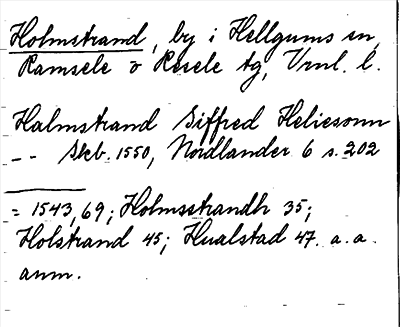 Holmstrand, by i Hellgums sn,
Ramsele o Resele tg, Vrnl. l.
Halmstrand Siffred Heliesonn
-- Skb. 1550, Nordlander 6 s. 202
= 1543, 69; Holmsstrandh 35;
Holstrand 45; Hualstad 47. a. a.
anm.